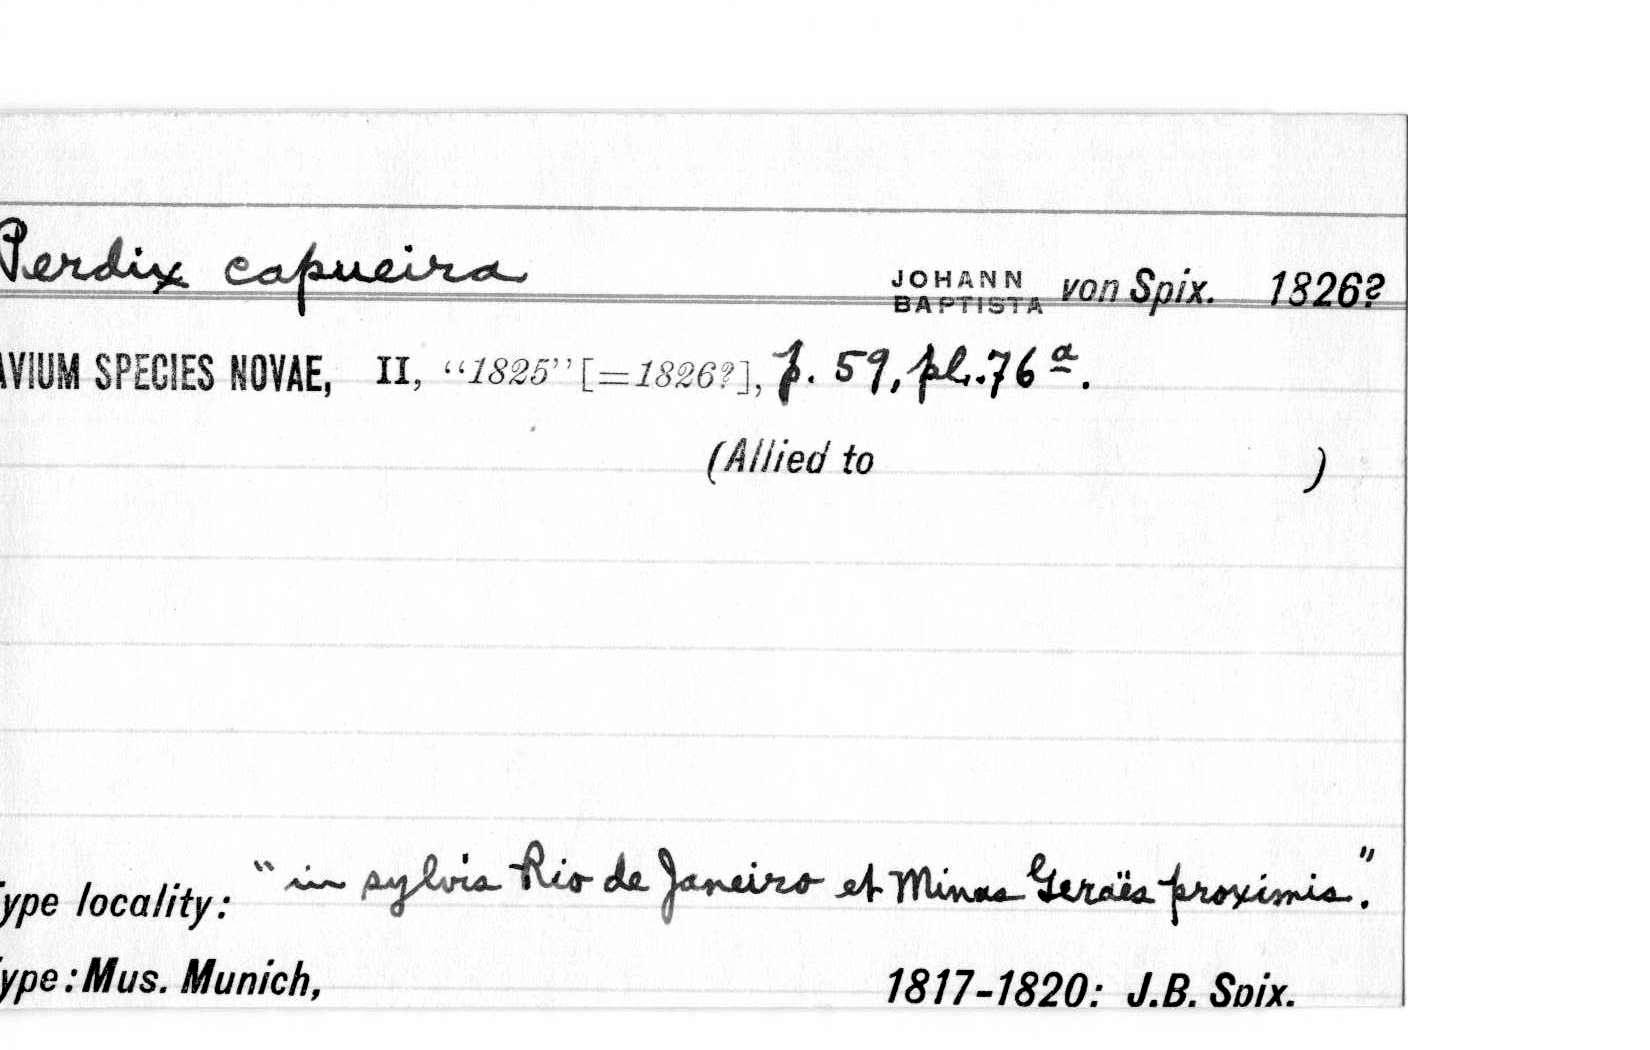 Perdix capueira JOHANN BAPTISTA von Spix. 1826?
AVIUM SPECIES NOVAE, II, "1825" [=1826?], p. 59, pl. 76 a.
(Allied to )
ype locality: "in sylvis Rio de Janeiro et Minas Geraës proximis."
ype: Mus. Munich, 1817-1820: J.B. Spix.